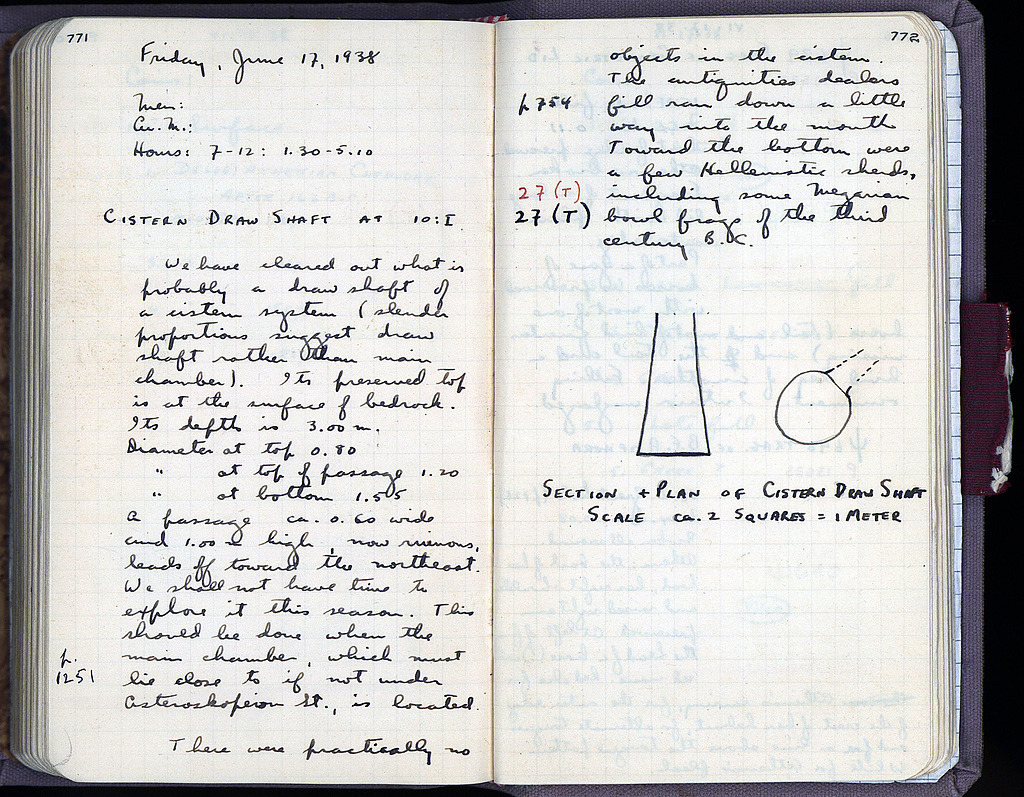 771
Friday, June 17, 1938
Men:
Au. M.:
Hours: 7-12: 1.30-5.10
CISTERN DRAW SHAFT AT 10:I
We have cleared out what is
probably a draw shaft of
a cistern system (slender
proportions suggest draw
shaft rather than main
chamber). Its preserved top
is at the surface of bedrock.
Its depth is 3.00 m.
Diameter at top 0.80
" at top of passage 1.20
" at bottom 1.55
A passage ca. 0.60 wide
and 1.00 m high, now ruinous,
leads off toward the northeast.
We shall not have time to
explore it this season. This
should be done when the
main chamber, which must
p.
1251
lie close to if not under
Asteroskopeion St., is located.
There were practically no
772
objects in the cistern.
The antiquities dealers
p 754 fill ran down a little
way into the mouth
Toward the bottom were
a few Hellenistic sherds,
27 (T) including some Megarian
27 (T) bowl frags of the third
century B.C.
SECTION + PLAN OF CISTERN DRAW SHAFT
SCALE ca. 2 SQUARES = 1 METER